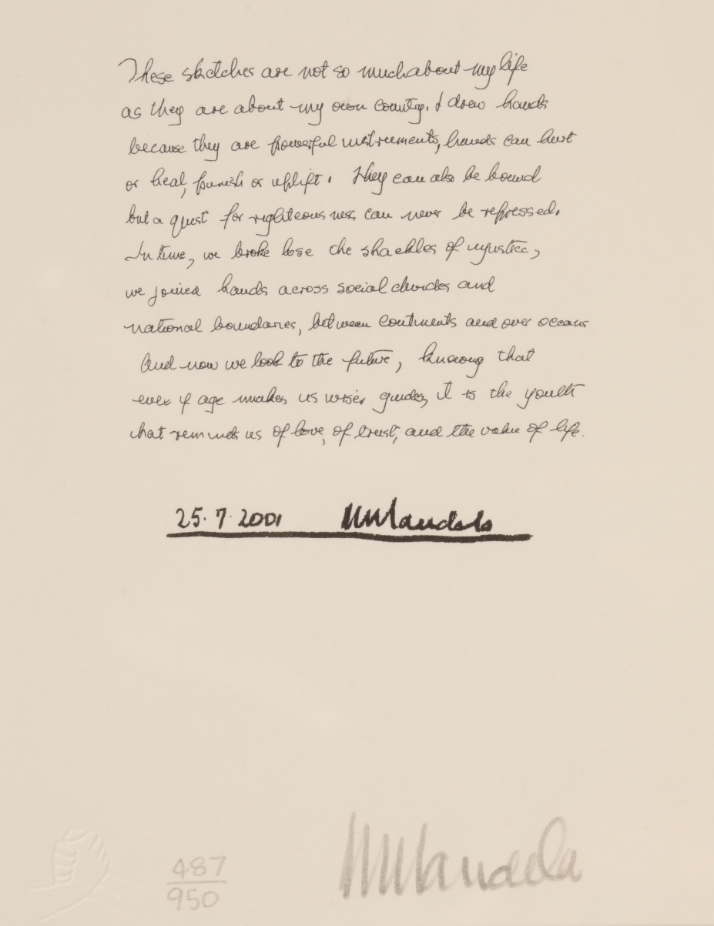 These sketches are not so much about my life
as they are about my own country. I drew hands
because they are powerful instruments, hands can hurt
or heal, punish or uplift. They can also be bound
but a quest for righteousness can never be repressed.
In time, we broke lose the shackles of injustice,
we joined hands across social divides and
national boundaries, between continents and over oceans
And now we look to the future, knowing that
even if age makes us wiser guides, it is the youth
that reminds us of love, of trust, and the value of life.
25.7.2001 NMandela
487
950
NMandela